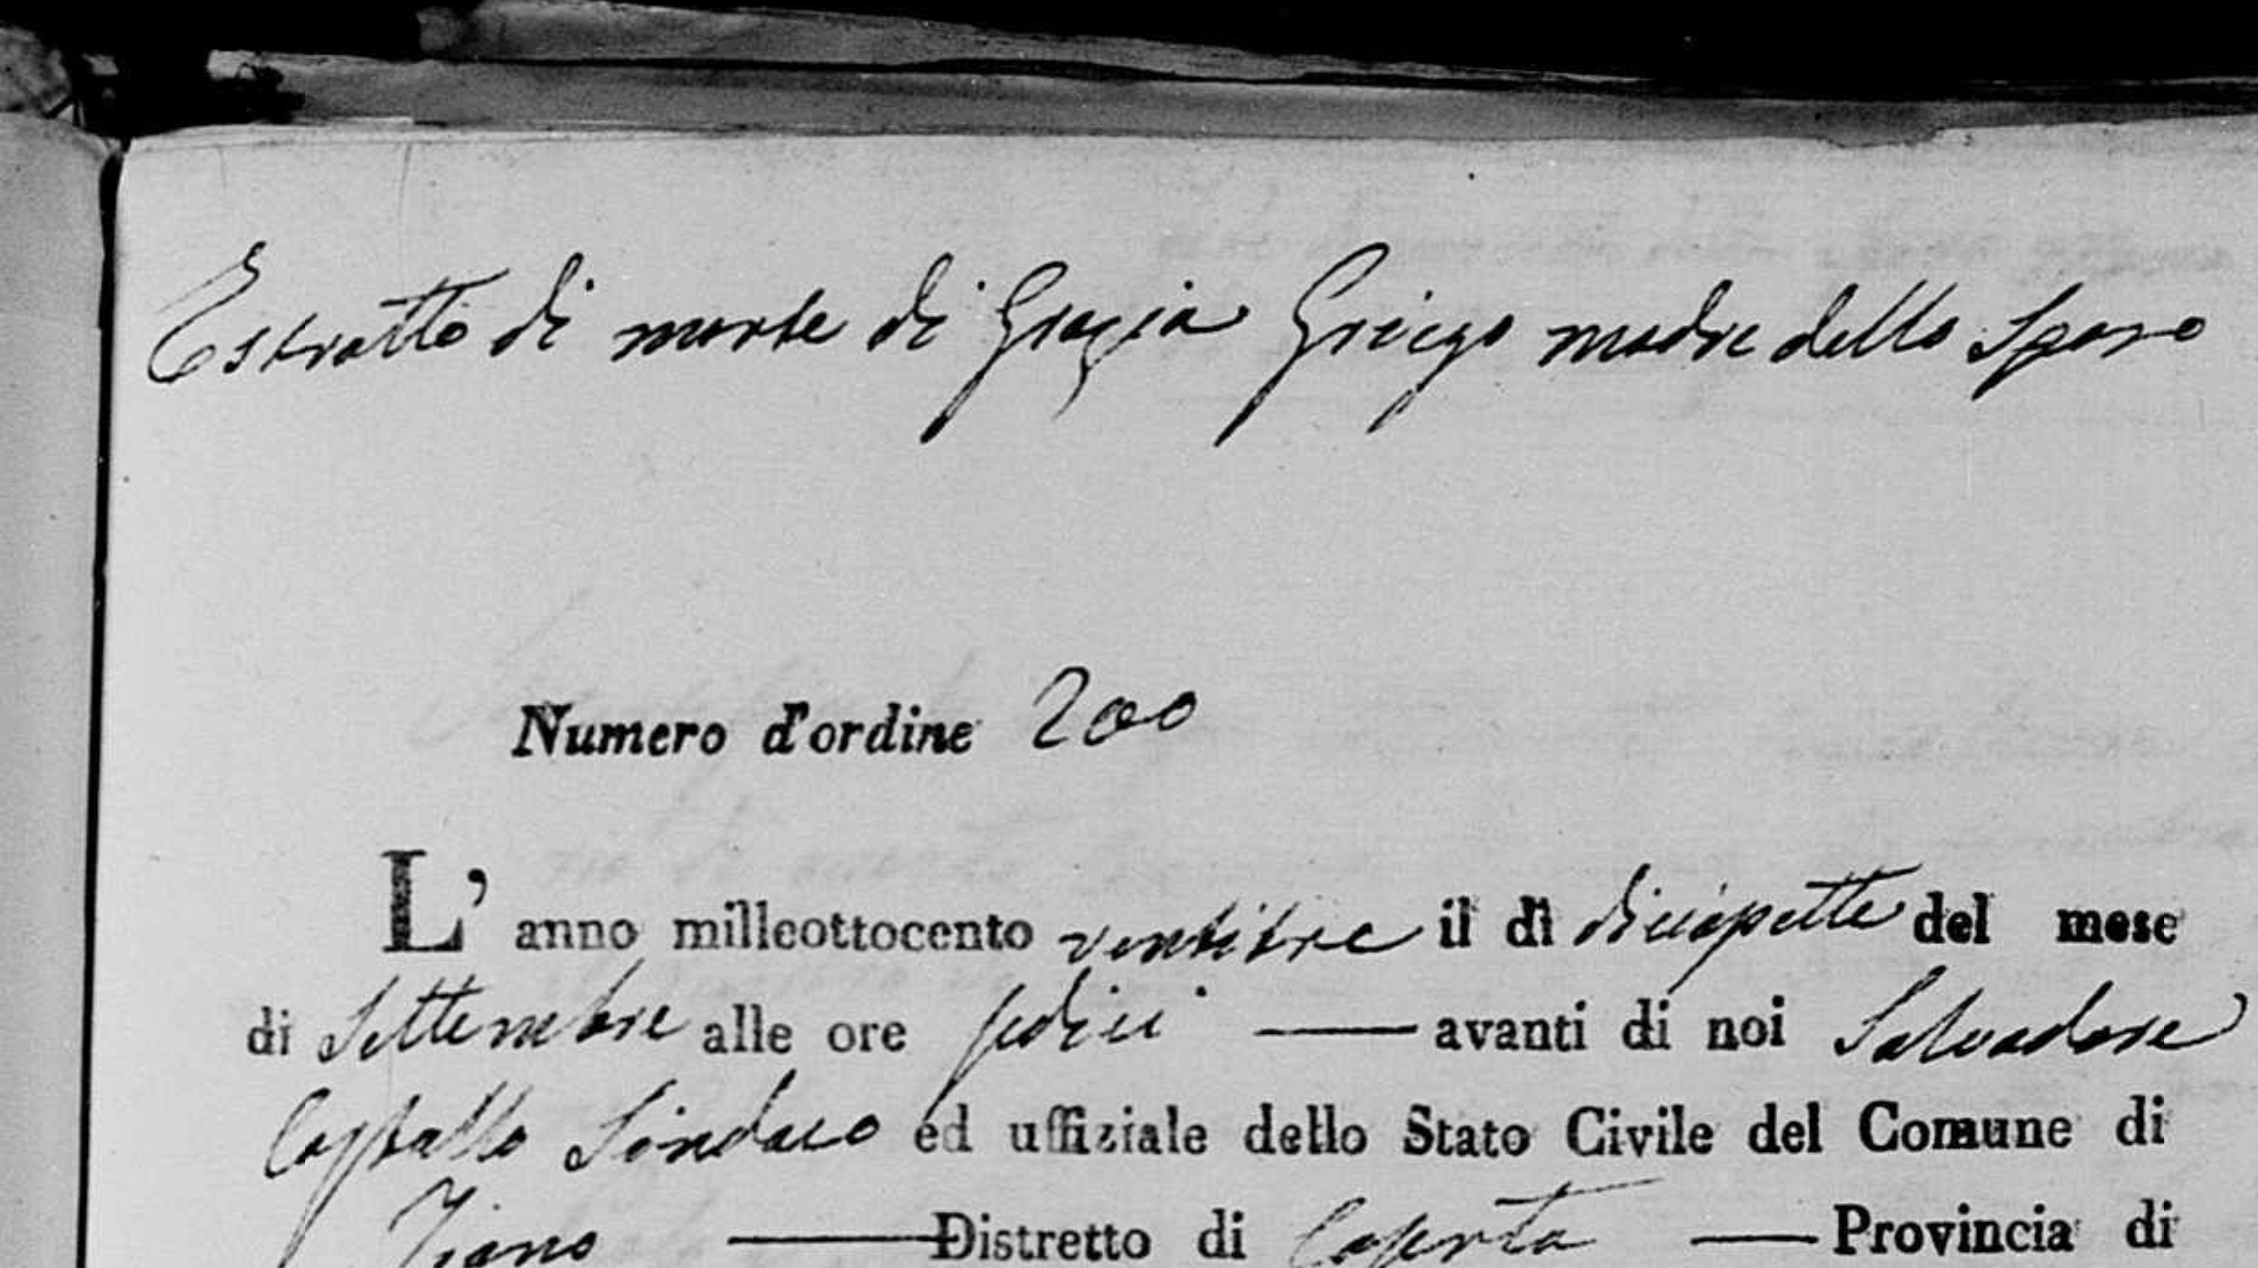 Estratto di morte di Grazia Griego madre dello Sposo
Numero d'ordine 200
L' anno milleottocento ventitre il dì diciasette del mese
di Settembre alle ore sedici — avanti di noi Salvadore
Sindaco ed uffiziale dello Stato Civile del Comune di
— Distretto di Caserta — Provincia di